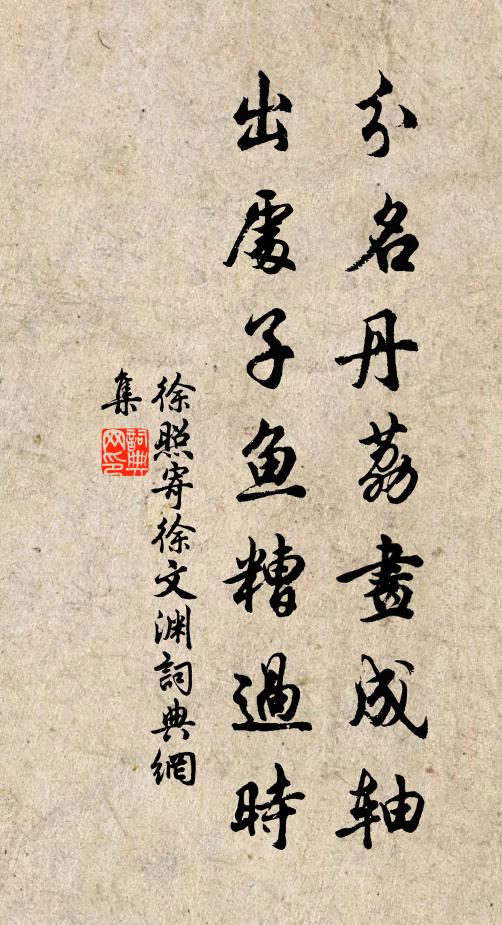 分名丹荔畫成軸
出處子魚糟過時
徐照寄徐文渊詞典網
集
詞典网印